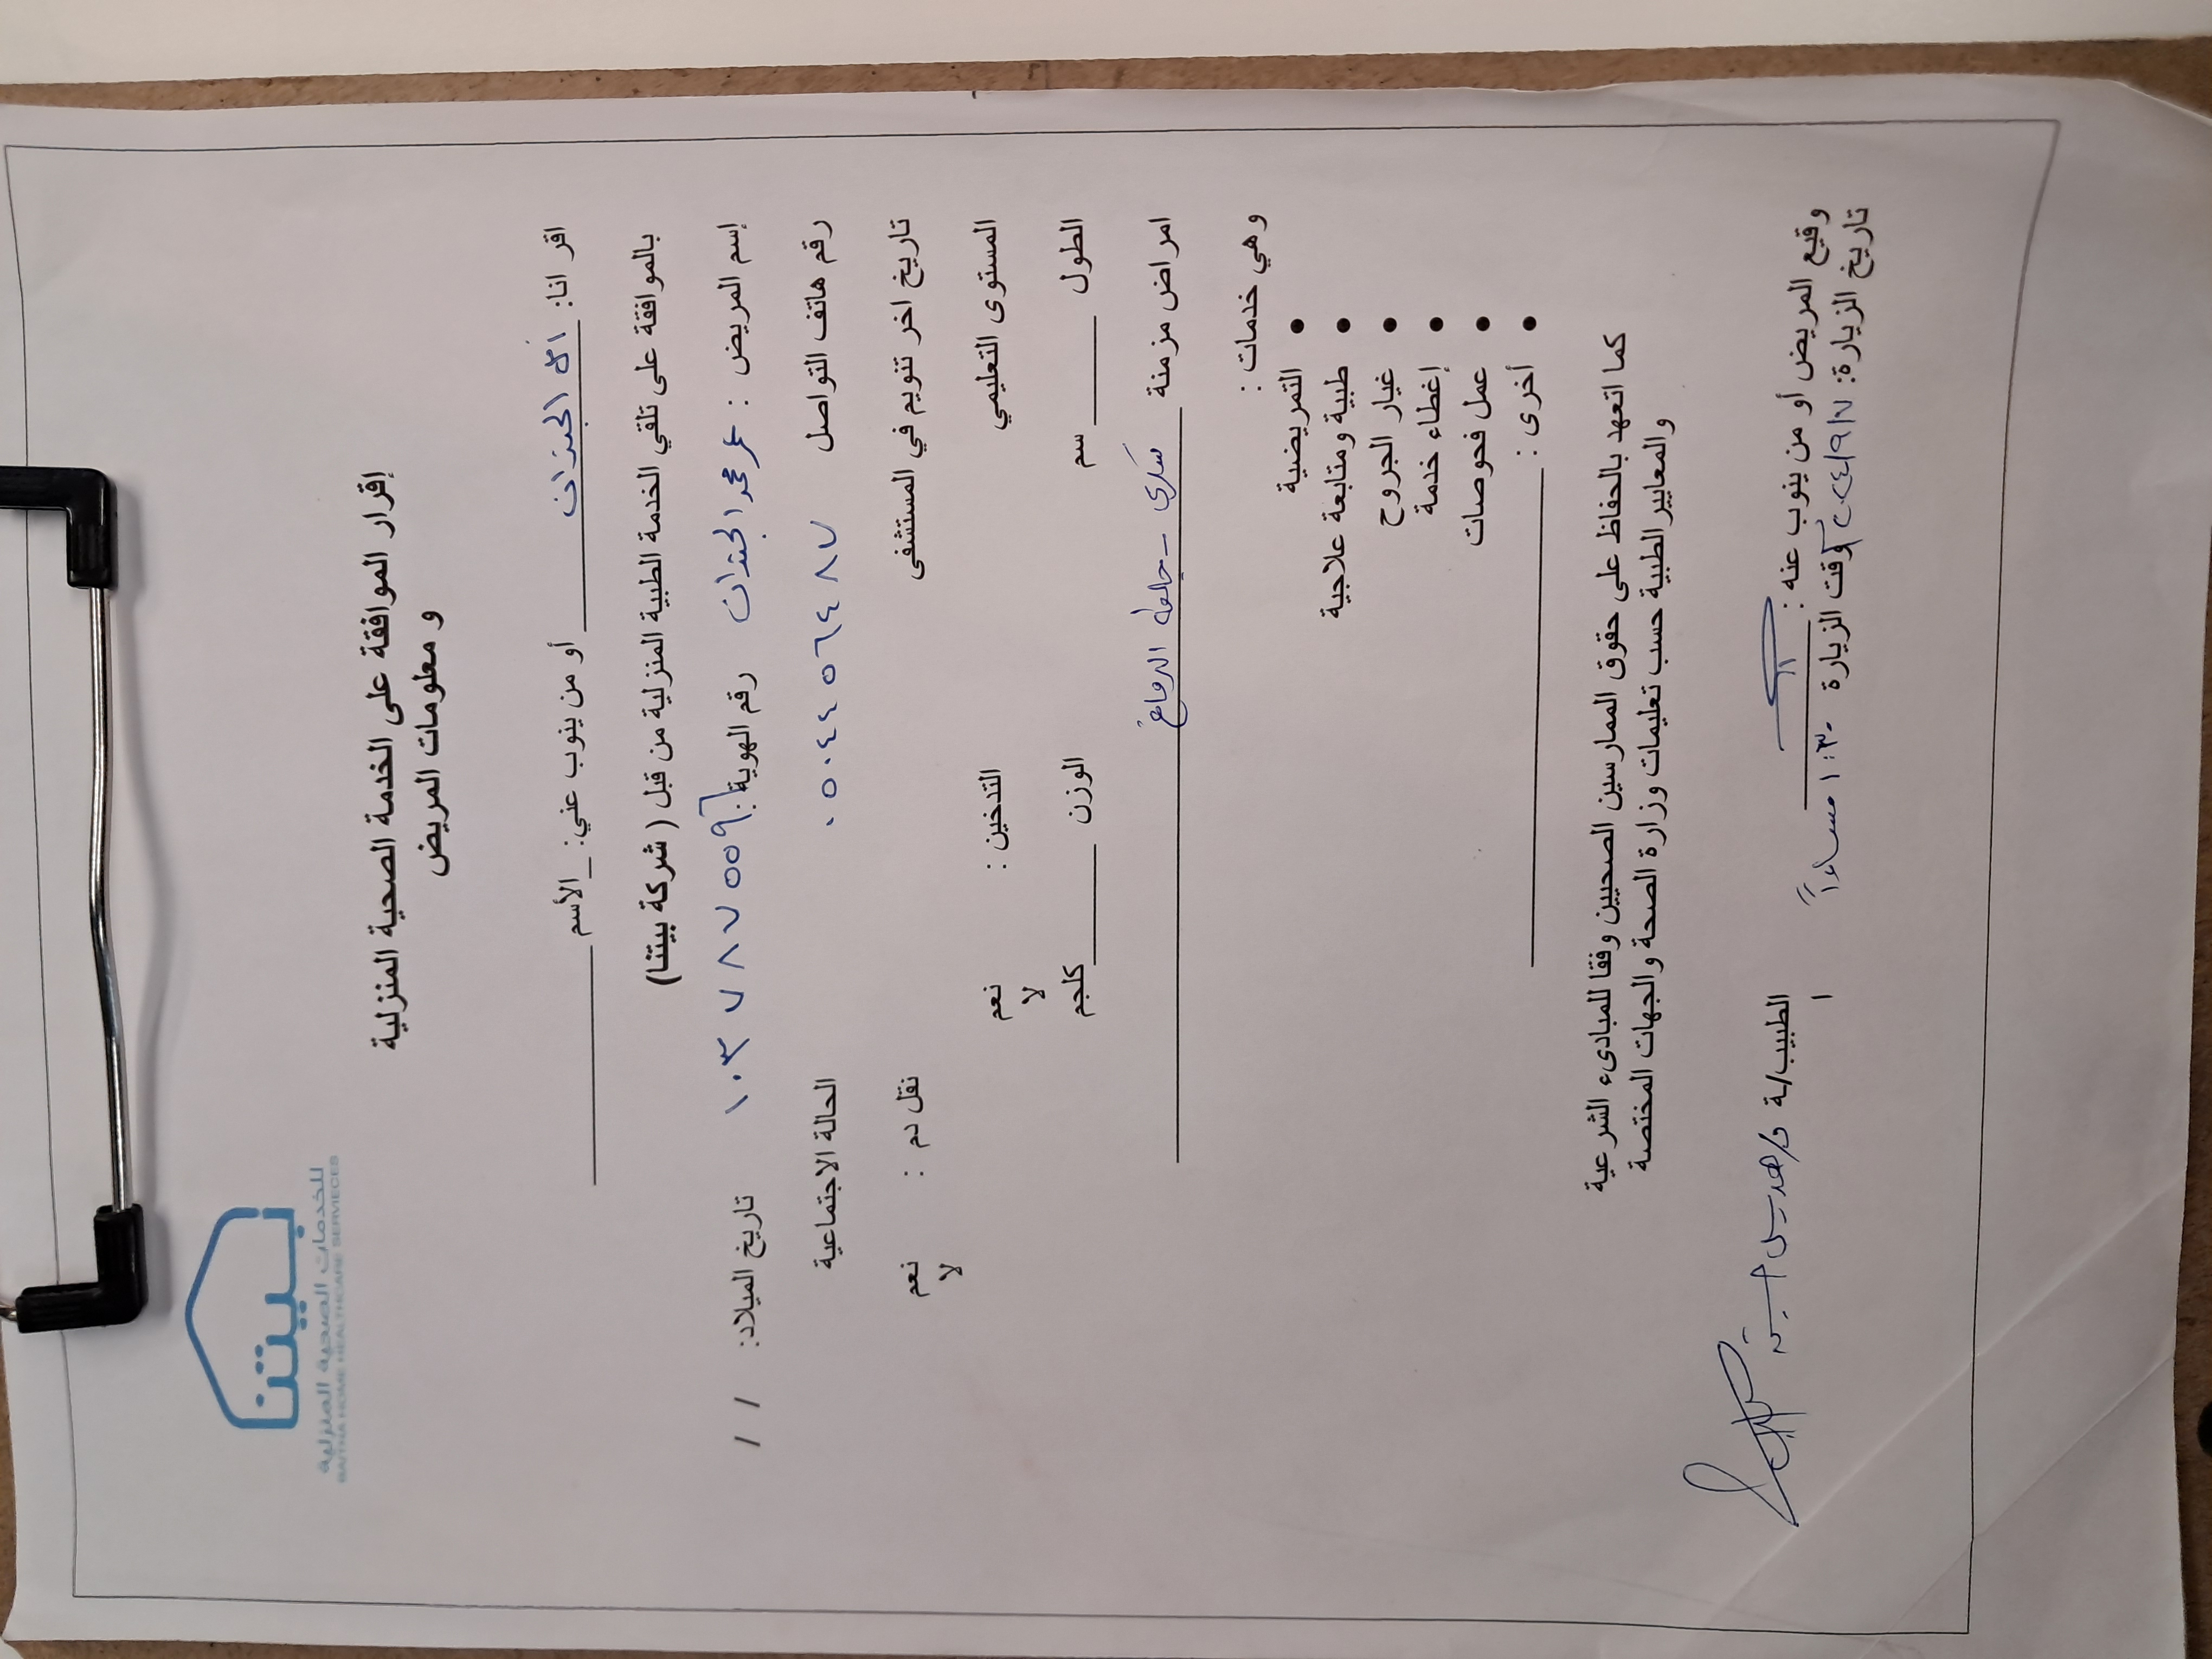 بيتنا
للخدمات الصحية المنزلية
BAITNA HOME HEALTHCARE SERVIECES
إقرار الموافقة على الخدمة الصحية المنزلية
و معلومات المريض
اقر انا: الجندان أو من ينوب عني: الأسم
بالموافقة على تلقي الخدمة الطبية المنزلية من قبل ( شركة بيتنا)
إسم المريض : عمر محمد الجندان رقم الهوية: ١٠٣٧٨٧٥٥٩٦ تاريخ الميلاد: / /
رقم هاتف التواصل ٠٥٠٤٤٥٦٤٨٧ الحالة الاجتماعية
تاريخ اخر تنويم في المستشفى نقل دم : نعم
لا
المستوى التعليمي التدخين : نعم
لا
الطول سم الوزن كلجم
امراض مزمنة سكري - جلطه الدماغ
وهي خدمات :
• التمريضية
• طبية ومتابعة علاجية
• غيار الجروح
• إغطاء خدمة
• عمل فحوصات
• أخرى :
كما اتعهد بالحفاظ على حقوق الممارسين الصحيين وفقا للمبادىء الشرعية
والمعايير الطبية حسب تعليمات وزارة الصحة والجهات المختصة
وقيع المريض أو من ينوب عنه : الطبيب/ة د/هديل
تاريخ الزيارة: ٢٠٢٤/٩/٧ وقت الزيارة ١:٣٠ مساءاً